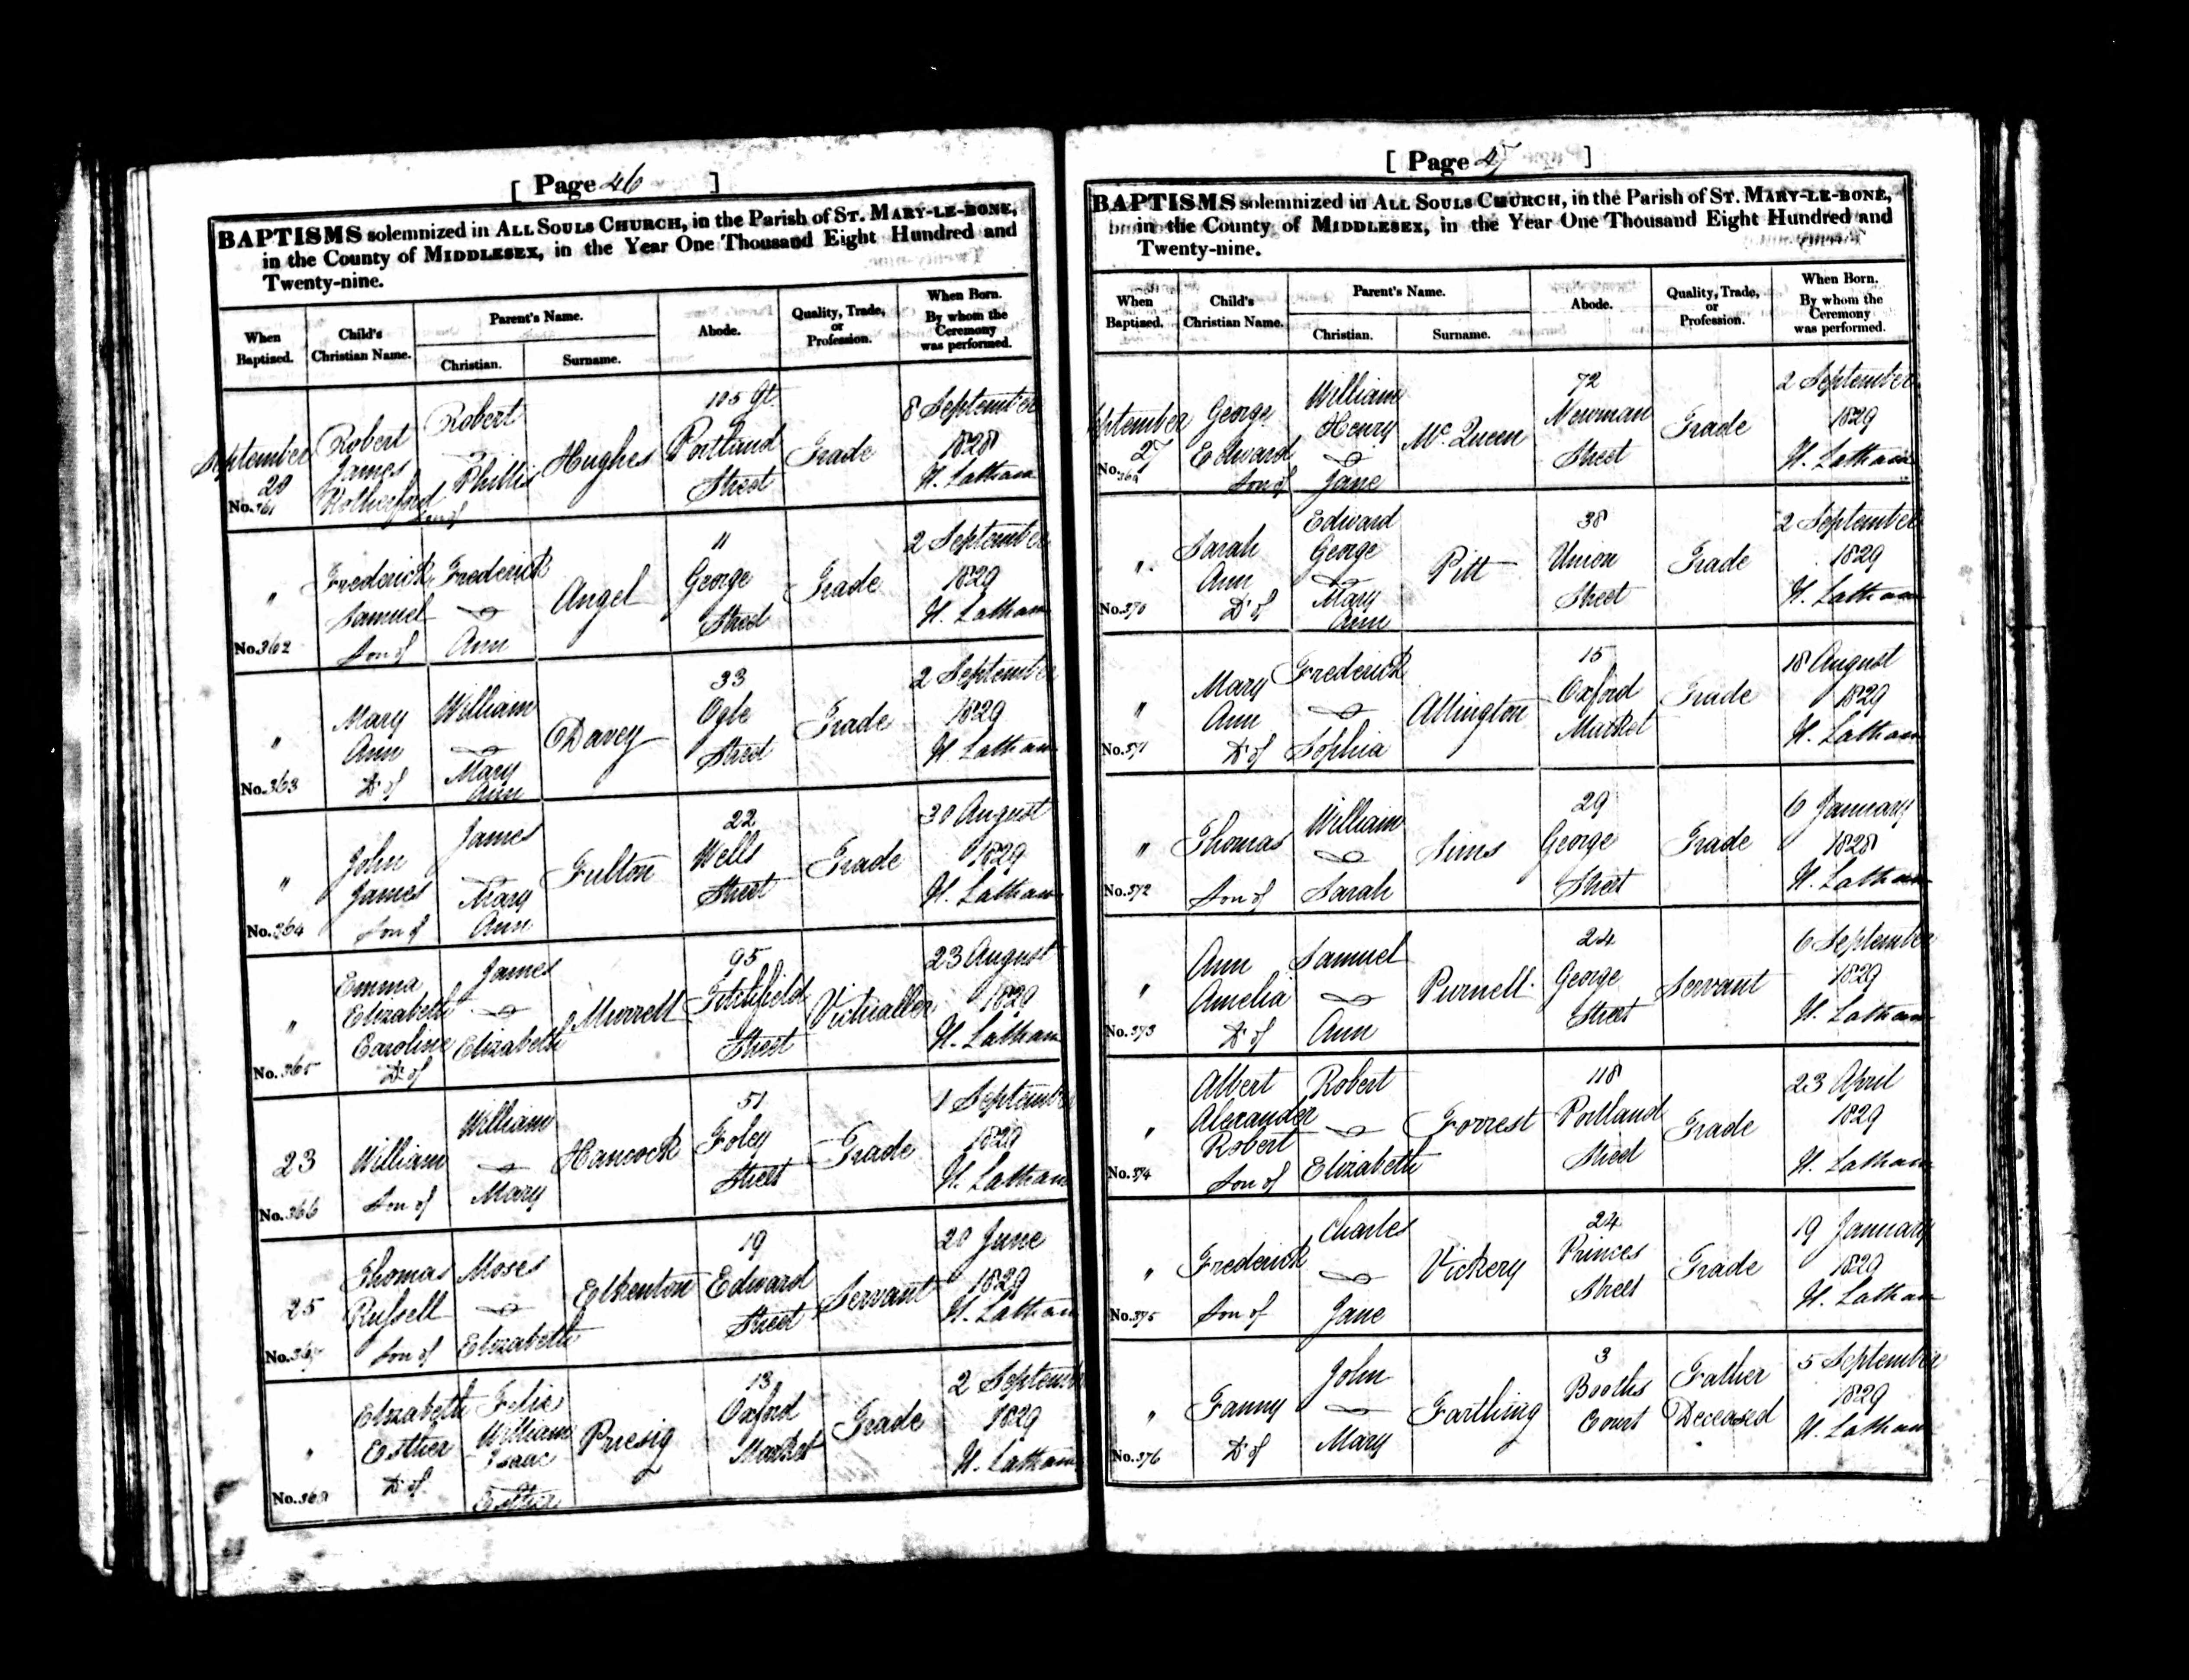 [ Page 46 ]
BAPTISMS solemnized in ALL SOULS CHURCH, in the Parish of ST. MARY-LE-BONE,
in the County of MIDDLESEX, in the Year One Thousand Eight Hundred and
Twenty-nine.
When Baptized. Child's Christian Name. Parent's Name. Christian. Surname. Abode. Quality, Trade, or Profession. When Born. By whom the Ceremony was performed.
September 20 No. 361 Robert James Rotherford Son of Robert Phillis Hughes 105 Gt. Portland Street Trade 8 September 1828 H. Latham
" No. 362 Frederick Samuel Son of Frederick Ann Angel 11 George Street Trade 2 September 1829 H. Latham
" No. 363 Mary Ann Dr of William Mary Ann Davey 33 Ogle Street Trade 2 September 1829 H. Latham
" No. 364 John James Son of James Mary Ann Fulton 22 Wells Street Trade 30 August 1829 H. Latham
" No. 365 Emma Elizabeth Caroline Dr of James Elizabeth Murrell 95 Titchfield Street Victualler 23 August 1829 H. Latham
23 No. 366 William Son of William Mary Hancock 51 Foley Street Trade 1 September 1829 H. Latham
25 No. 367 Thomas Russell Son of Moses Elizabeth Elkenton 19 Edward Street Servant 20 June 1829 H. Latham
" No. 368 Elizabeth Esther Dr of Felix William Isaac Esther Priesig 13 Oxford Market Trade 2 September 1829 H. Latham
[ Page 47 ]
BAPTISMS solemnized in ALL SOULS CHURCH, in the Parish of ST. MARY-LE-BONE,
in the County of MIDDLESEX, in the Year One Thousand Eight Hundred and
Twenty-nine.
When Baptized. Child's Christian Name. Parent's Name. Christian. Surname. Abode. Quality, Trade, or Profession. When Born. By whom the Ceremony was performed.
September 27 No. 369 George Edward Son of William Henry Jane Mc Queen 72 Newman Street Trade 2 September 1829 H. Latham
" No. 370 Sarah Ann Dr of Edward George Mary Ann Pitt 38 Union Street Trade 2 September 1829 H. Latham
" No. 371 Mary Ann Dr of Frederick Sophia Allington 15 Oxford Market Trade 18 August 1829 H. Latham
" No. 372 Thomas Son of William Sarah Sims 29 George Street Trade 6 January 1828 H. Latham
" No. 373 Ann Amelia Dr of Samuel Ann Purnell 24 George Street Servant 6 September 1829 H. Latham
" No. 374 Albert Alexander Robert Son of Robert Elizabeth Forrest 118 Portland Street Trade 23 April 1829 H. Latham
" No. 375 Frederick Son of Charles Jane Vickery 24 Princes Street Trade 19 January 1829 H. Latham
" No. 376 Fanny Dr of John Mary Farthing 3 Booths Court Father Deceased 5 September 1829 H. Latham